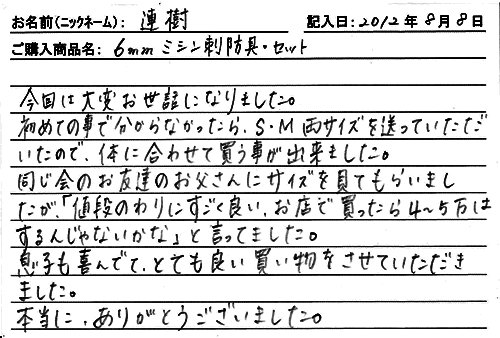 お名前(ニックネーム): 連樹 記入日:2012年8月8日
ご購入商品名: 6mmミシン刺防具・セット
今回は大変お世話になりました。
初めての事で分からなかったら、S・M両サイズを送っていただだ
いたので、体に合わせて買う事が出来ました。
同じ会のお友達のお父さんにサイズを見てもらいまし
たが、「値段のわりにすごく良い、お店で買ったら4~5万は
するんじゃないかな」と言ってました。
息子も喜んでて、とても良い買い物をさせていただき
ました。
本当に、ありがとうございました。